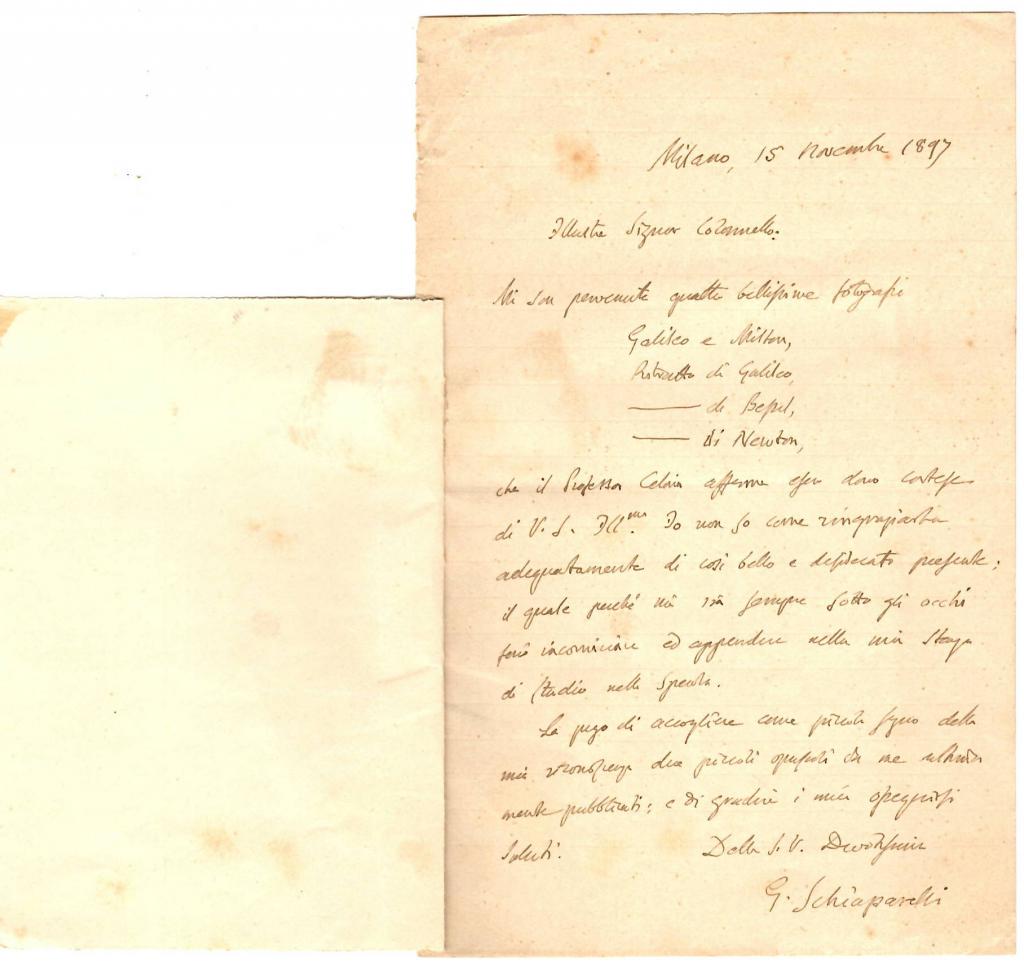 Milano, 15 Novembre 1897
Illustre Signor Colonnello.
Mi son pervenute quattro bellissime fotografie
Galileo e Milton,
Ritratto di Galileo,
—— di Bessel,
—— di Newton,
che il Professor Celoria afferma esser dono cortese
di V. S. Ill.ma Io non so come ringraziarla
adeguatamente di così bello e desiderato presente;
il quale perché mi sia sempre sotto gli occhi
farò incorniciare ed appendere nella mia stanza
di studio nella Specola.
La prego di accogliere come piccolo segno della
mia riconoscenza due piccoli opuscoli da me ultima
mente pubblicati; e di gradire i miei ossequiosi
saluti.
Della S. V. Devotissimo
G. Schiaparelli